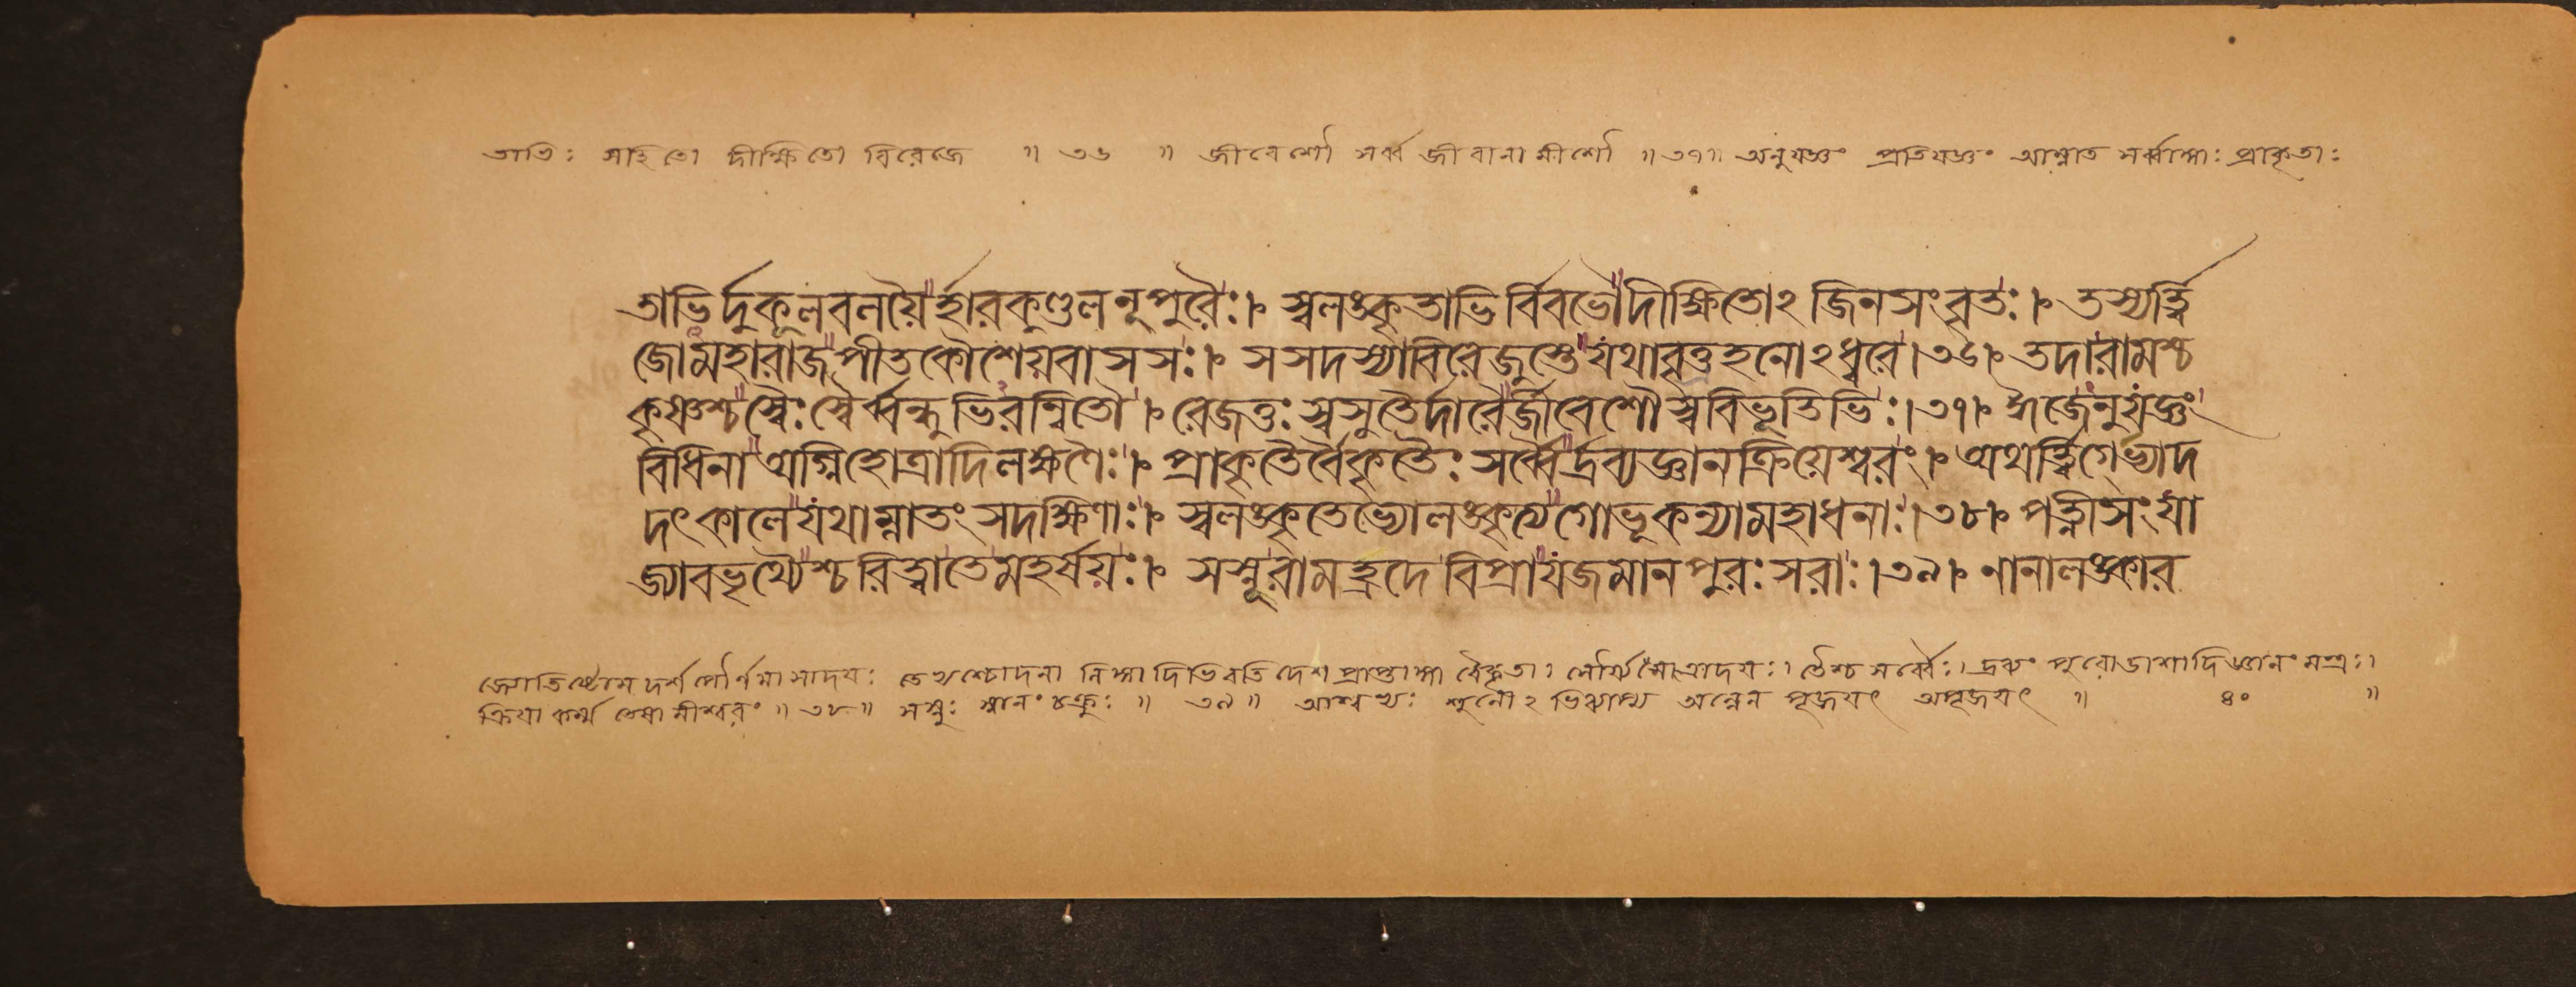 তাভিঃ সহিতো দীক্ষিতো বিরেজে ॥ ৩৬ ॥ জীবেশৌ সর্ব্ব জীবানামীশৌ ॥ ৩৭ ॥ অনুযজ্ঞং প্রতিযজ্ঞং আম্নাত সর্ব্বাঙ্গাঃ প্রাকৃতাঃ
তাভির্দুকূলবলয়ৈর্হারকুণ্ডলনূপুরৈঃ।৷ স্বলঙ্কৃতাভির্বিবভৌদীক্ষিতোঽজিনসংবৃতঃ।৷ তস্যর্ত্ত্বি
জোমহারাজপীতকৌশেয়বাসসঃ।৷ সসদস্যাবিরেজুস্তেযথাবৃত্রহনোঽধ্বরে।৩৬।৷ তদারামশ্চ
কৃষ্ণশ্চস্বৈঃস্বৈর্ব্বন্ধুভিরন্বিতৌ।৷ রেজতুঃস্বসুতৈর্দারৈর্জীবেশৌস্ববিভূতিভিঃ।৩৭।৷ ঈজেনুযজ্ঞং
বিধিনাঅগ্নিহোত্রাদিলক্ষণৈঃ।৷ প্রাকৃতৈর্বৈকৃতৈঃসর্ব্বৈর্দ্রব্যজ্ঞানক্রিয়েশ্বরং।৷ অথর্ত্ত্বিগ্ভ্যোদ
দৎকালেযথাম্নাতংসদক্ষিণাঃ।৷ স্বলঙ্কৃতেভ্যোলঙ্কৃত্যগোভূকন্যামহাধনাঃ।৩৮।৷ পত্নীসংযা
জ্যাবভৃথ্যৈশ্চরিত্বাতেমহর্ষয়ঃ।৷ সস্নূরামহ্রদেবিপ্রাযজমানপুরঃসরাঃ।৩৯।৷ নানালঙ্কার
জ্যোতিষ্টোম দর্শপৌর্ণমাসাদয়ঃ দেশপ্রাপ্তাঙ্গা বৈকৃতাঃ তৈশ্চ সর্ব্বৈঃ। দ্রব্যং পুরোডাশাদি জ্ঞানং মন্ত্রঃ।
ক্রিয়া কর্ম্ম তেষামীশ্বরং ॥ ৩৮ ॥ সস্নুঃ স্নানং চক্রুঃ ॥ ৩৯ ॥ আশ্বভ্যঃ শুনোঽভিব্যাপ্য অন্নেন পূজয়ৎ অপূজয়ৎ ॥ ৪০ ॥